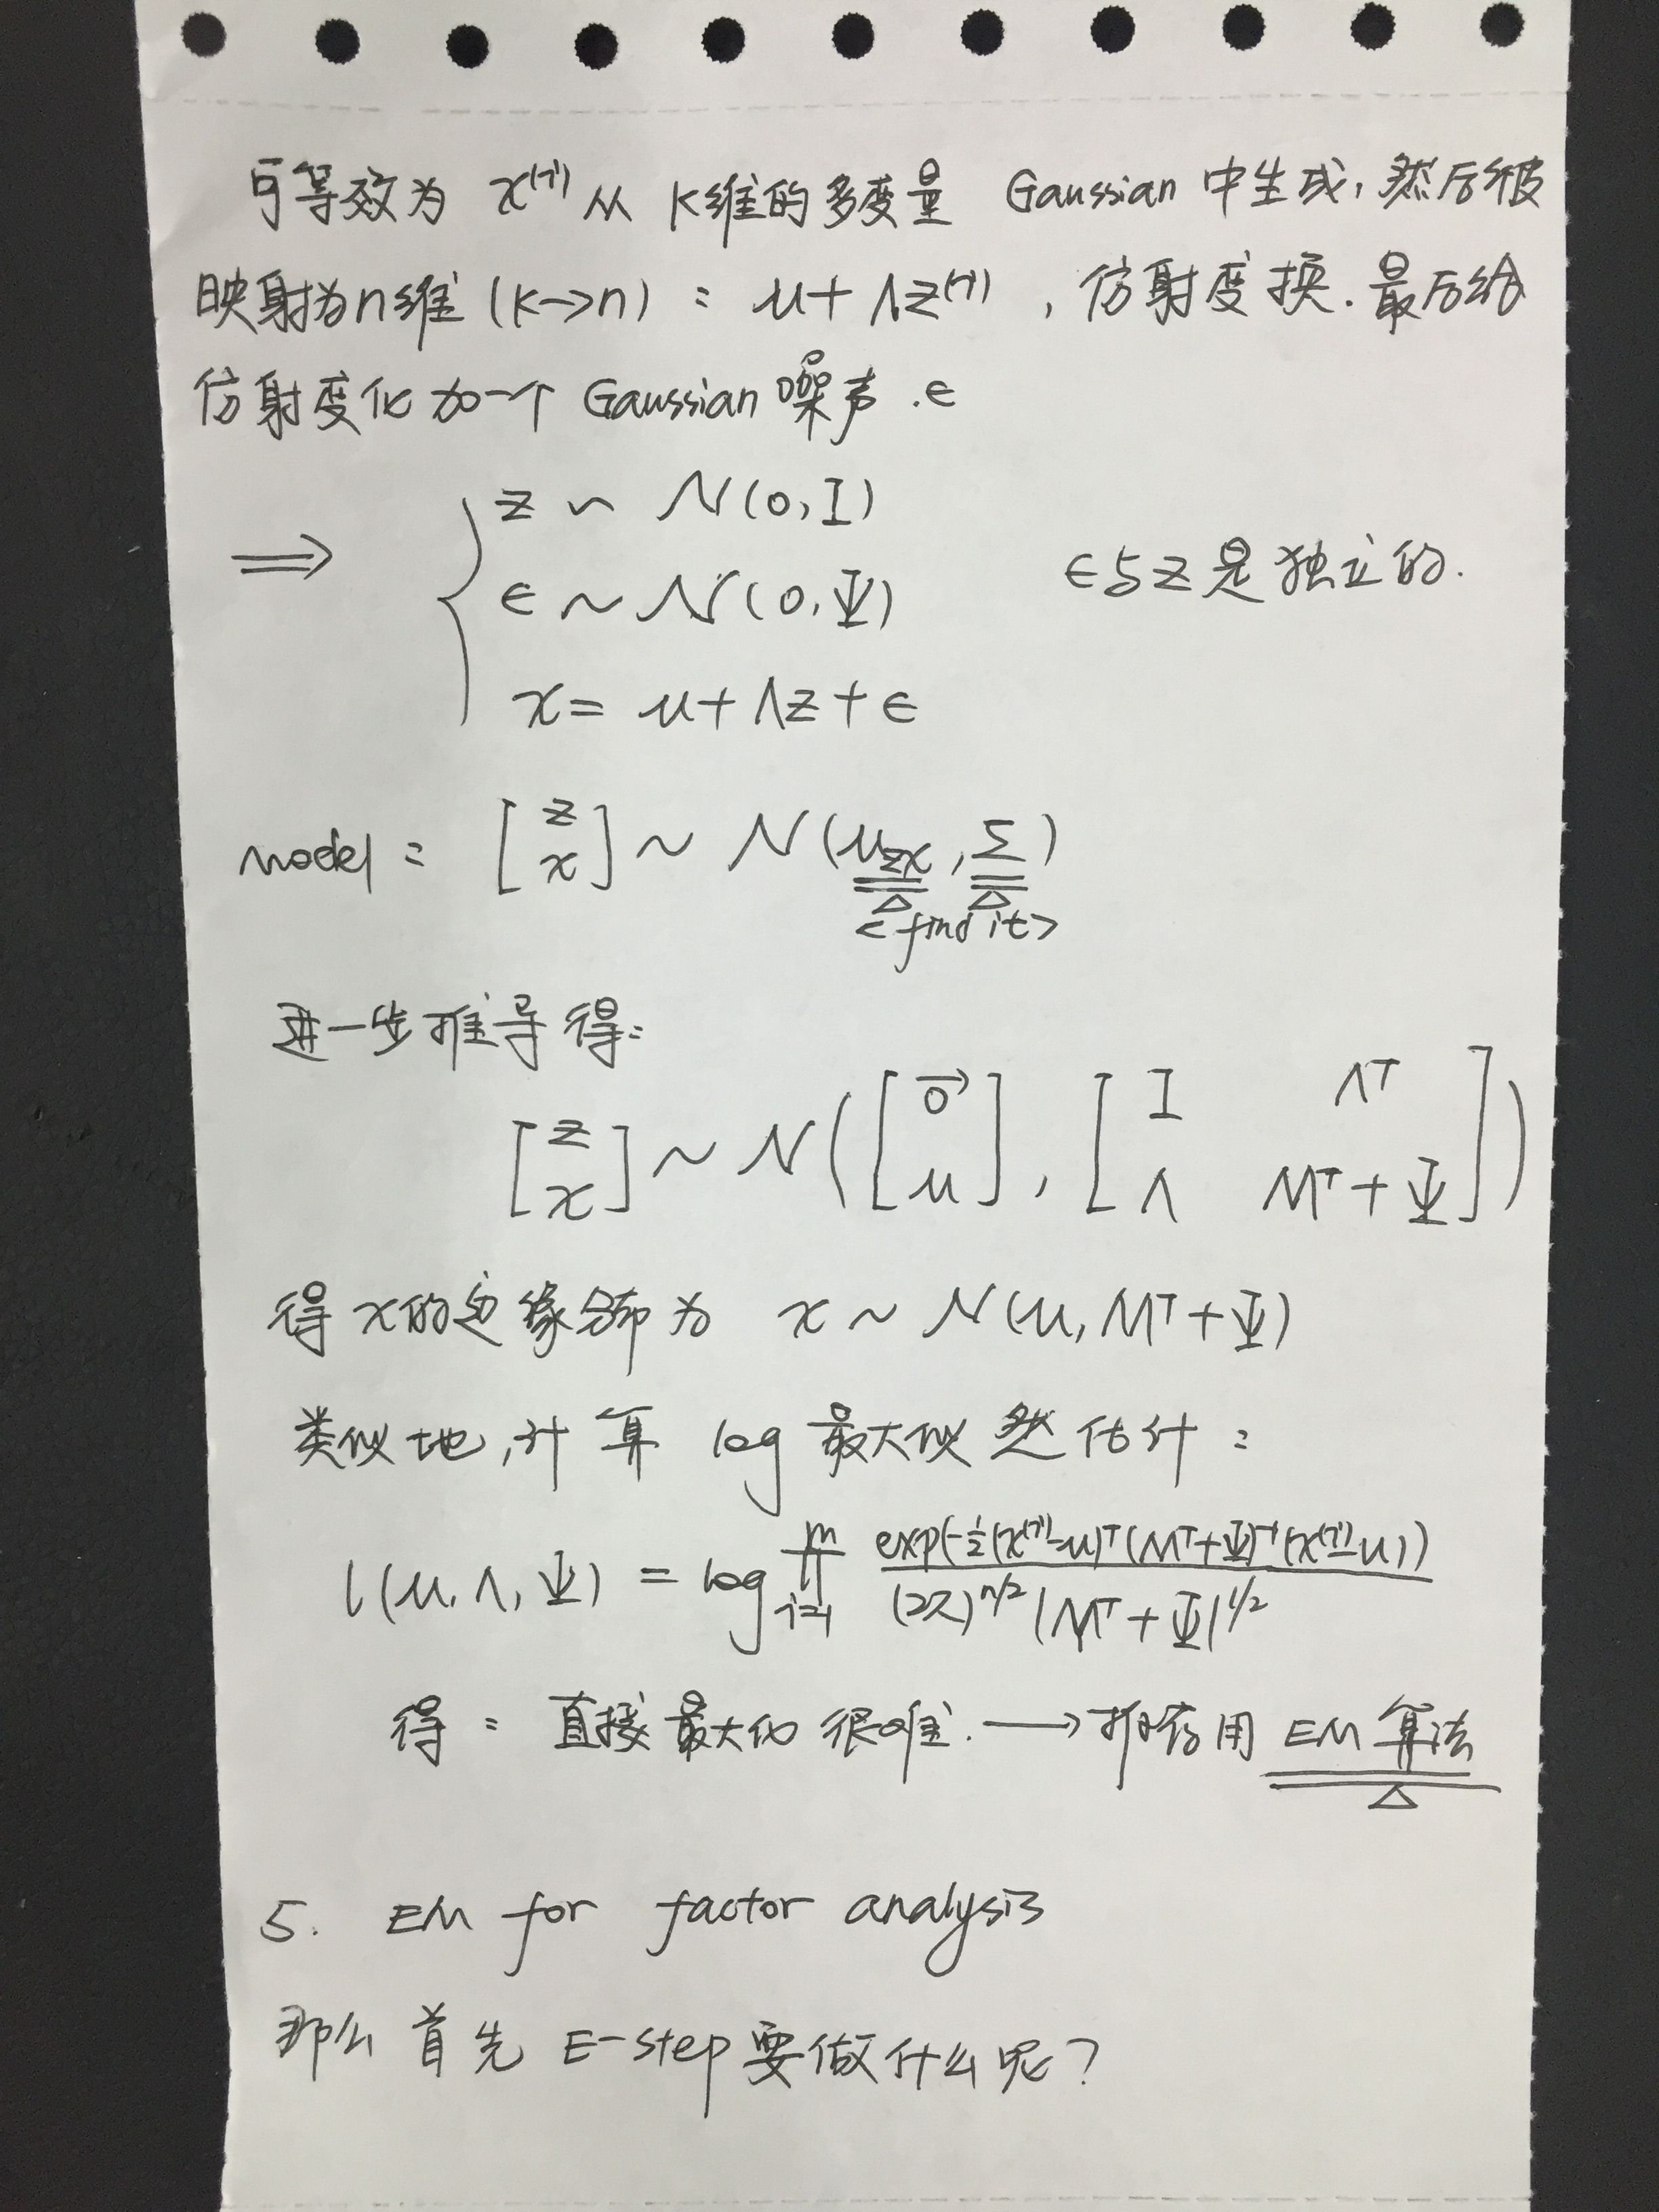 可等效为 x⁽ⁱ⁾ 从 K维的多变量 Gaussian 中生成, 然后被
映射为n维 (k→n) : μ + Λz⁽ⁱ⁾ , 仿射变换. 最后给
仿射变化加一个 Gaussian 噪声. ϵ
⟹ { z ∼ N(0, I)
ϵ ∼ N(0, Ψ) ϵ与z是独立的.
x = μ + Λz + ϵ
model : [z x] ∼ N(μzx, Σ)
<find it>
进一步推导得:
[z x] ∼ N([0⃗ μ], [I Λᵀ Λ ΛΛᵀ + Ψ])
得 x的边缘分布为 x ∼ N(μ, ΛΛᵀ + Ψ)
类似地, 计算 log 最大似然估计 :
l(μ, Λ, Ψ) = log ∏ᵢ₌₁ᵐ exp(-½(x⁽ⁱ⁾-μ)ᵀ(ΛΛᵀ+Ψ)⁻¹(x⁽ⁱ⁾-μ)) / (2π)ⁿ/² |ΛΛᵀ + Ψ|¹/²
得 : 直接最大化很难. → 推荐用 EM 算法
5. EM for factor analysis
那么首先 E-step 要做什么呢?